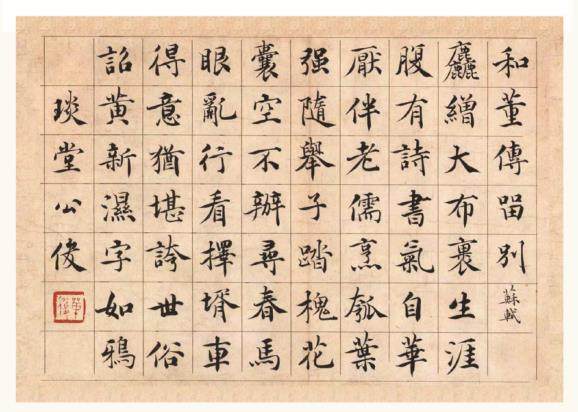 和董傳留別
蘇軾
麤繒大布裹生涯
腹有詩書氣自華
厭伴老儒烹瓠葉
强隨舉子踏槐花
囊空不辦尋春馬
眼亂行看擇壻車
得意猶堪誇世俗
詔黃新濕字如鴉
琰堂公俊